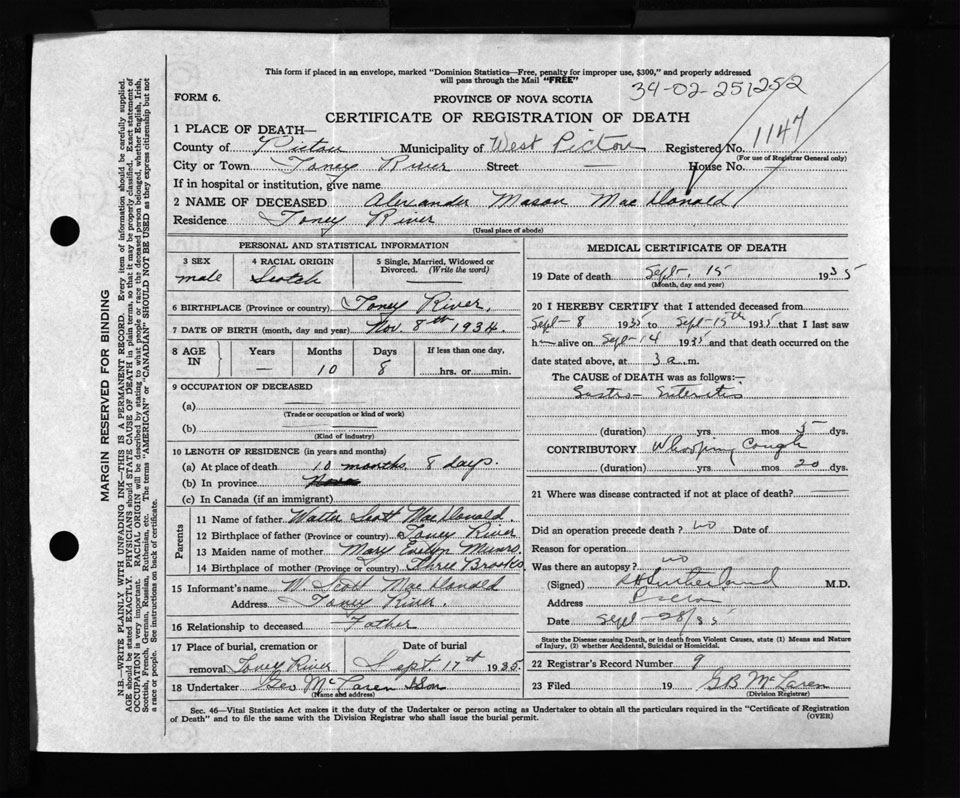 This form if placed in an envelope, marked "Dominion Statistics—Free, penalty for improper use, $300," and properly addressed
will pass through the Mail "FREE"
34-02-251252
FORM 6.
PROVINCE OF NOVA SCOTIA
CERTIFICATE OF REGISTRATION OF DEATH
1147
1 PLACE OF DEATH—
County of Pictou Municipality of West Pictou Registered No.
(For use of Registrar General only)
City or Town Toney River Street House No.
If in hospital or institution, give name
2 NAME OF DECEASED Alexander Mason MacDonald
Residence Toney River
(Usual place of abode)
PERSONAL AND STATISTICAL INFORMATION
3 SEX 4 RACIAL ORIGIN 5 Single, Married, Widowed or
Divorced. (Write the word)
male Scotch
6 BIRTHPLACE (Province or country) Toney River,
7 DATE OF BIRTH (month, day and year) Nov. 8th 1934.
8 AGE IN Years Months Days If less than one day,
— 10 8 hrs. or min.
9 OCCUPATION OF DECEASED
(a)
(Trade or occupation or kind of work)
(b)
(Kind of industry)
10 LENGTH OF RESIDENCE (in years and months)
(a) At place of death 10 months, 8 days.
(b) In province
(c) In Canada (if an immigrant)
Parents
11 Name of father Walter Scott MacDonald.
12 Birthplace of father (Province or country) Toney River
13 Maiden name of mother Mary Evelyn Munro.
14 Birthplace of mother (Province or country) Three Brooks
15 Informant's name W. Scott MacDonald
Address Toney River.
16 Relationship to deceased Father
17 Place of burial, cremation or Date of burial
removal Toney River Sept. 17th 1935
18 Undertaker Geo McLaren & Son
(Name and address)
MEDICAL CERTIFICATE OF DEATH
19 Date of death Sept, 15 1935
(Month, day and year)
20 I HEREBY CERTIFY that I attended deceased from
Sept-8 1935 to Sept-15th 1935 that I last saw
h alive on Sept-14 1935 and that death occurred on the
date stated above, at 3 a.m.
The CAUSE of DEATH was as follows:—
Gastro-Enteritis
(duration) yrs. mos 5 dys.
CONTRIBUTORY Whooping Cough
(duration) yrs. mos 20 dys.
21 Where was disease contracted if not at place of death?
Did an operation precede death? no Date of
Reason for operation
Was there an autopsy? no
(Signed) Sutherland M.D.
Address Pictou
Date Sept-28/35
State the Disease causing Death, or in death from Violent Causes, state (1) Means and Nature
of Injury, (2) whether Accidental, Suicidal or Homicidal.
22 Registrar's Record Number 9
23 Filed 19 G B McLaren
(Division Registrar)
Sec. 46—Vital Statistics Act makes it the duty of the Undertaker or person acting as Undertaker to obtain all the particulars required in the "Certificate of Registration
of Death" and to file the same with the Division Registrar who shall issue the burial permit. (OVER)
MARGIN RESERVED FOR BINDING
N.B.—WRITE PLAINLY WITH UNFADING INK—THIS IS A PERMANENT RECORD. Every item of information should be carefully supplied.
AGE should be stated EXACTLY. PHYSICIANS should STATE CAUSE OF DEATH in plain terms, so that it may be properly classified. Exact statement of
OCCUPATION is very important. RACIAL ORIGIN will be described by stating to what people or race the deceased person belonged, whether English, Irish,
Scottish, French, German, Russian, Ruthenian, etc. The terms "AMERICAN" or "CANADIAN" SHOULD NOT BE USED as they express citizenship but not
a race or people. See instructions on back of certificate.